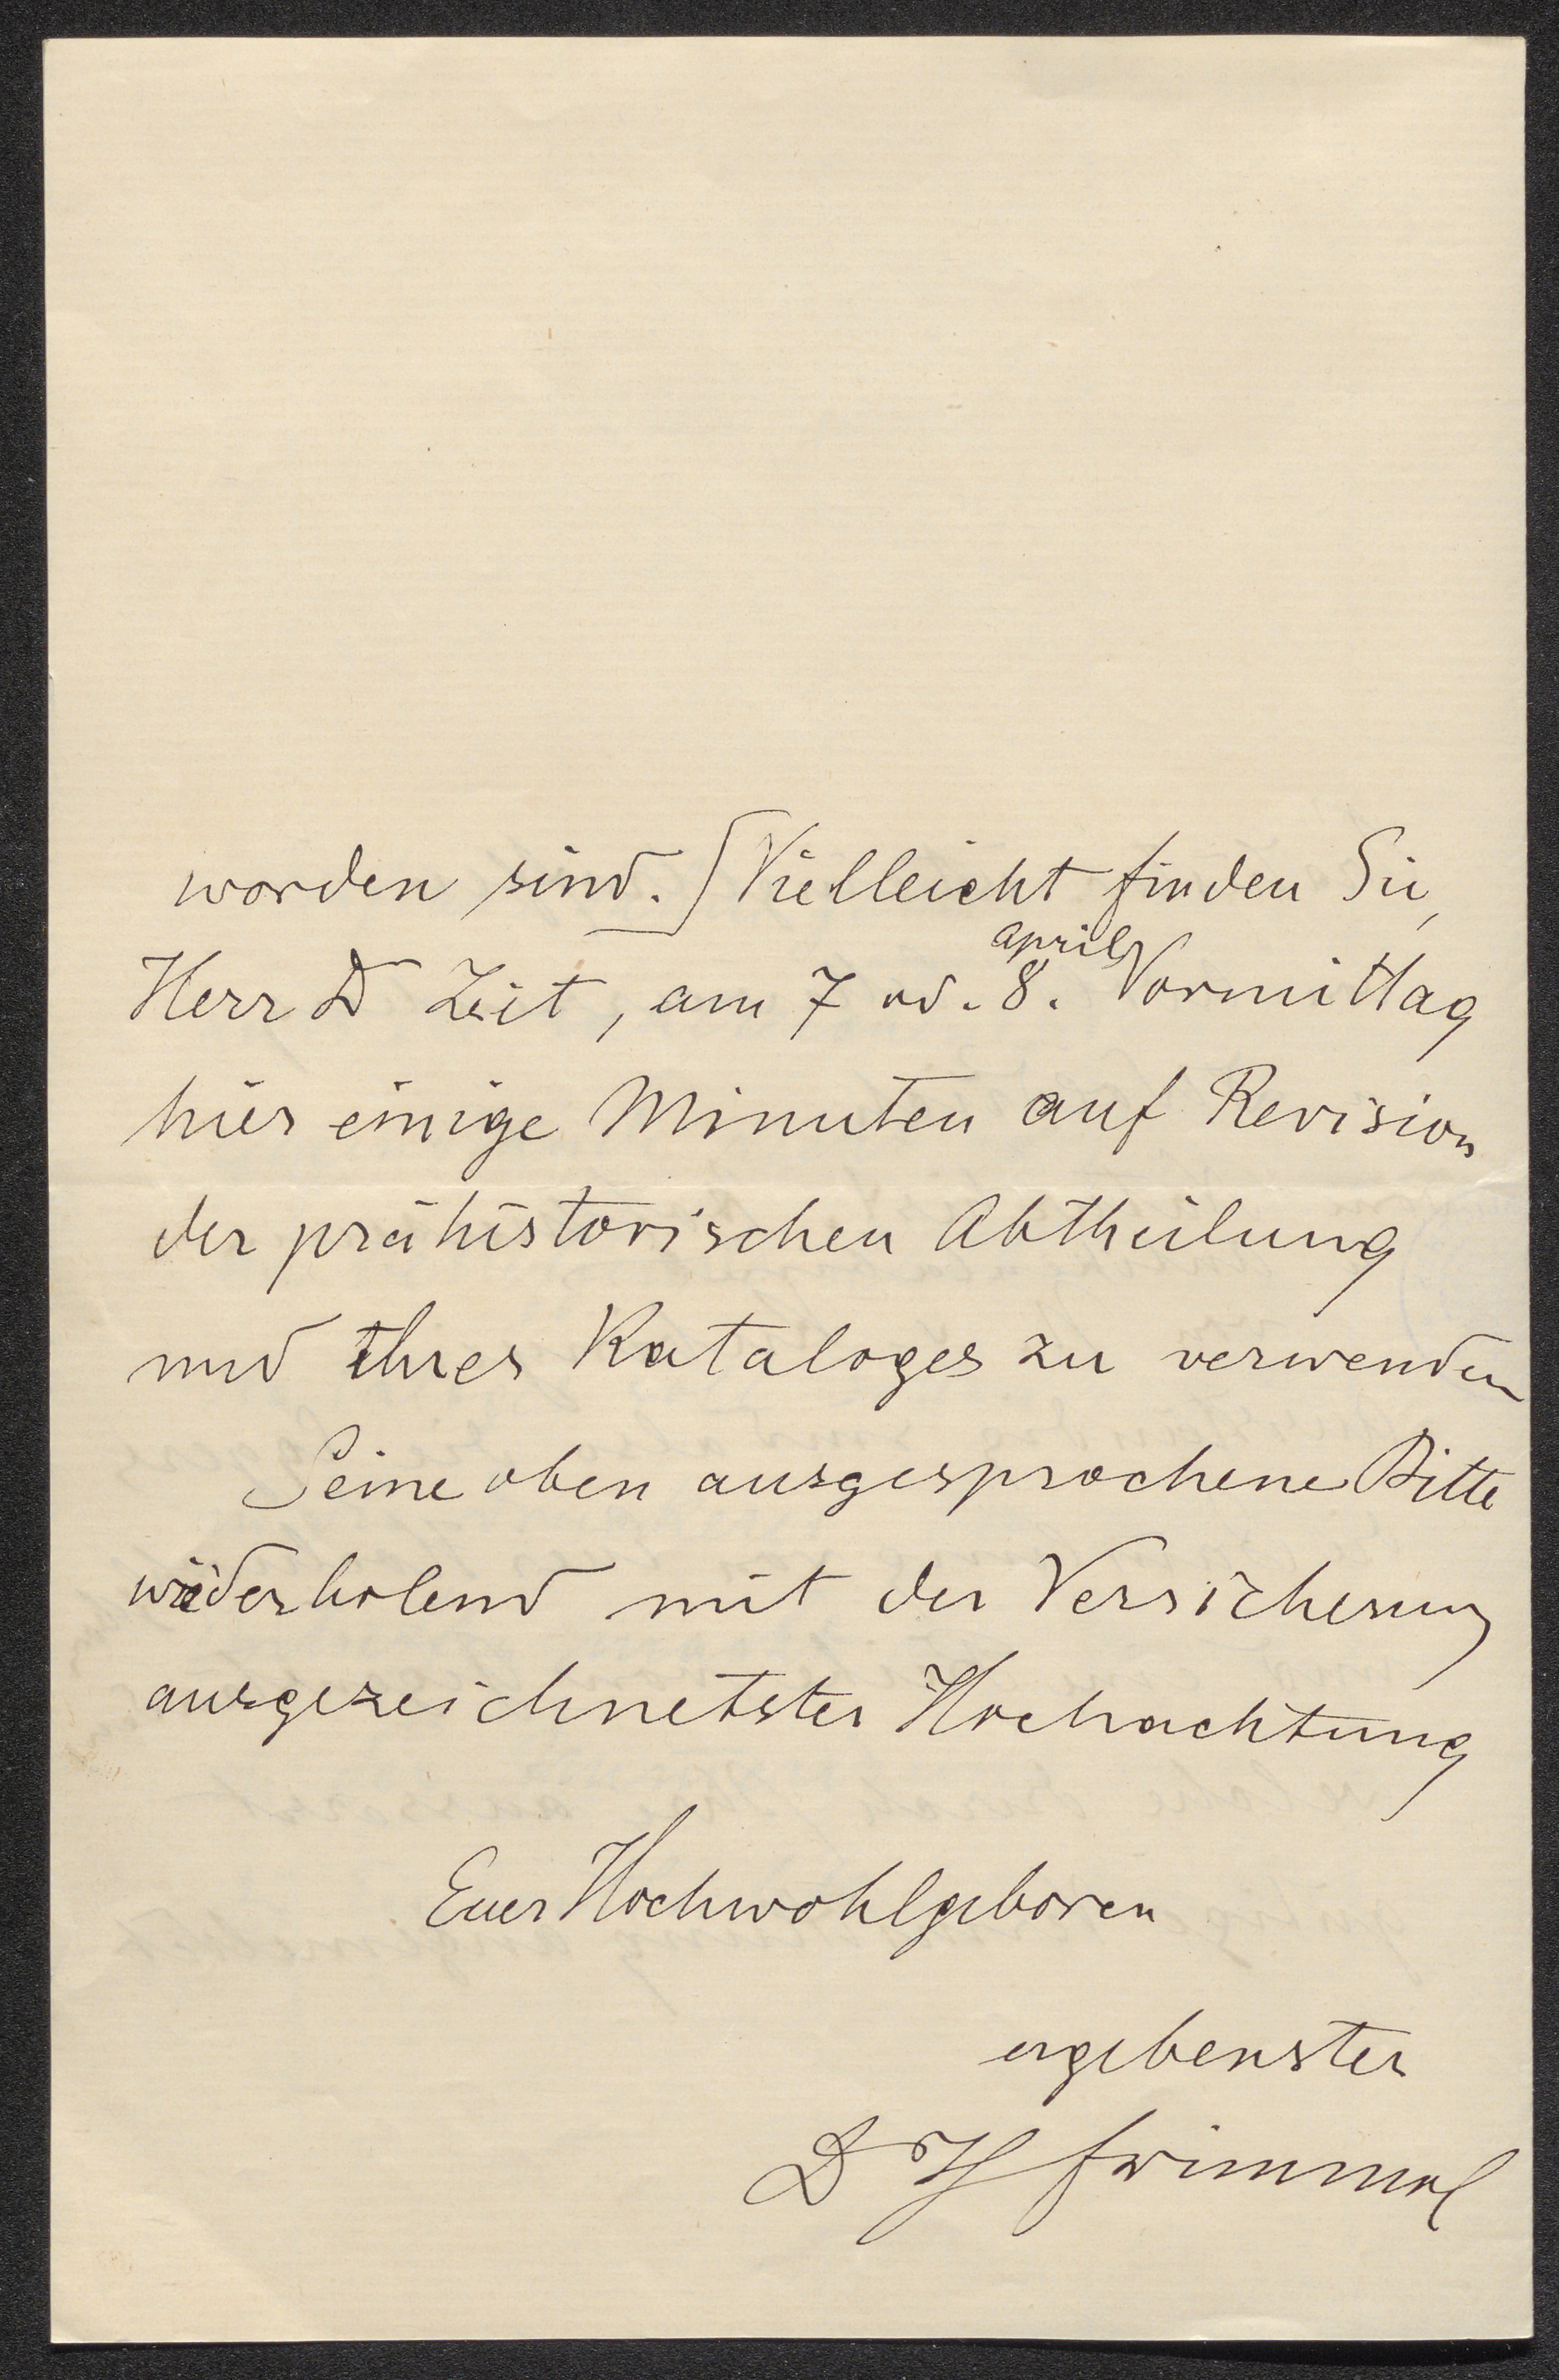 worden sind. Vielleicht finden Sie,
Herr Dr Zeit, am 7 od. 8. april Vormittag
hier einige Minuten auf Revision
der prähistorischen Abtheilung
und ihres Kataloges zu verwenden
Seine oben ausgesprochene Bitte
wiederholend mit der Versicherung
ausgezeichnetster Hochachtung
Euer Hochwohlgeboren
ergebenster
Dr H frimmel